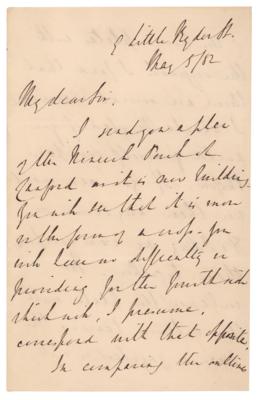 9 Little Ryder St.
May 5/82
My dear Sir.
I send you a plan
of the Nineveh Porch at
Canford as it is now building
You will see that it is more
in the form of a cross. You
will have no difficulty in
providing for the fourth side
which will, I presume,
correspond with that opposite.
In comparing the outlines